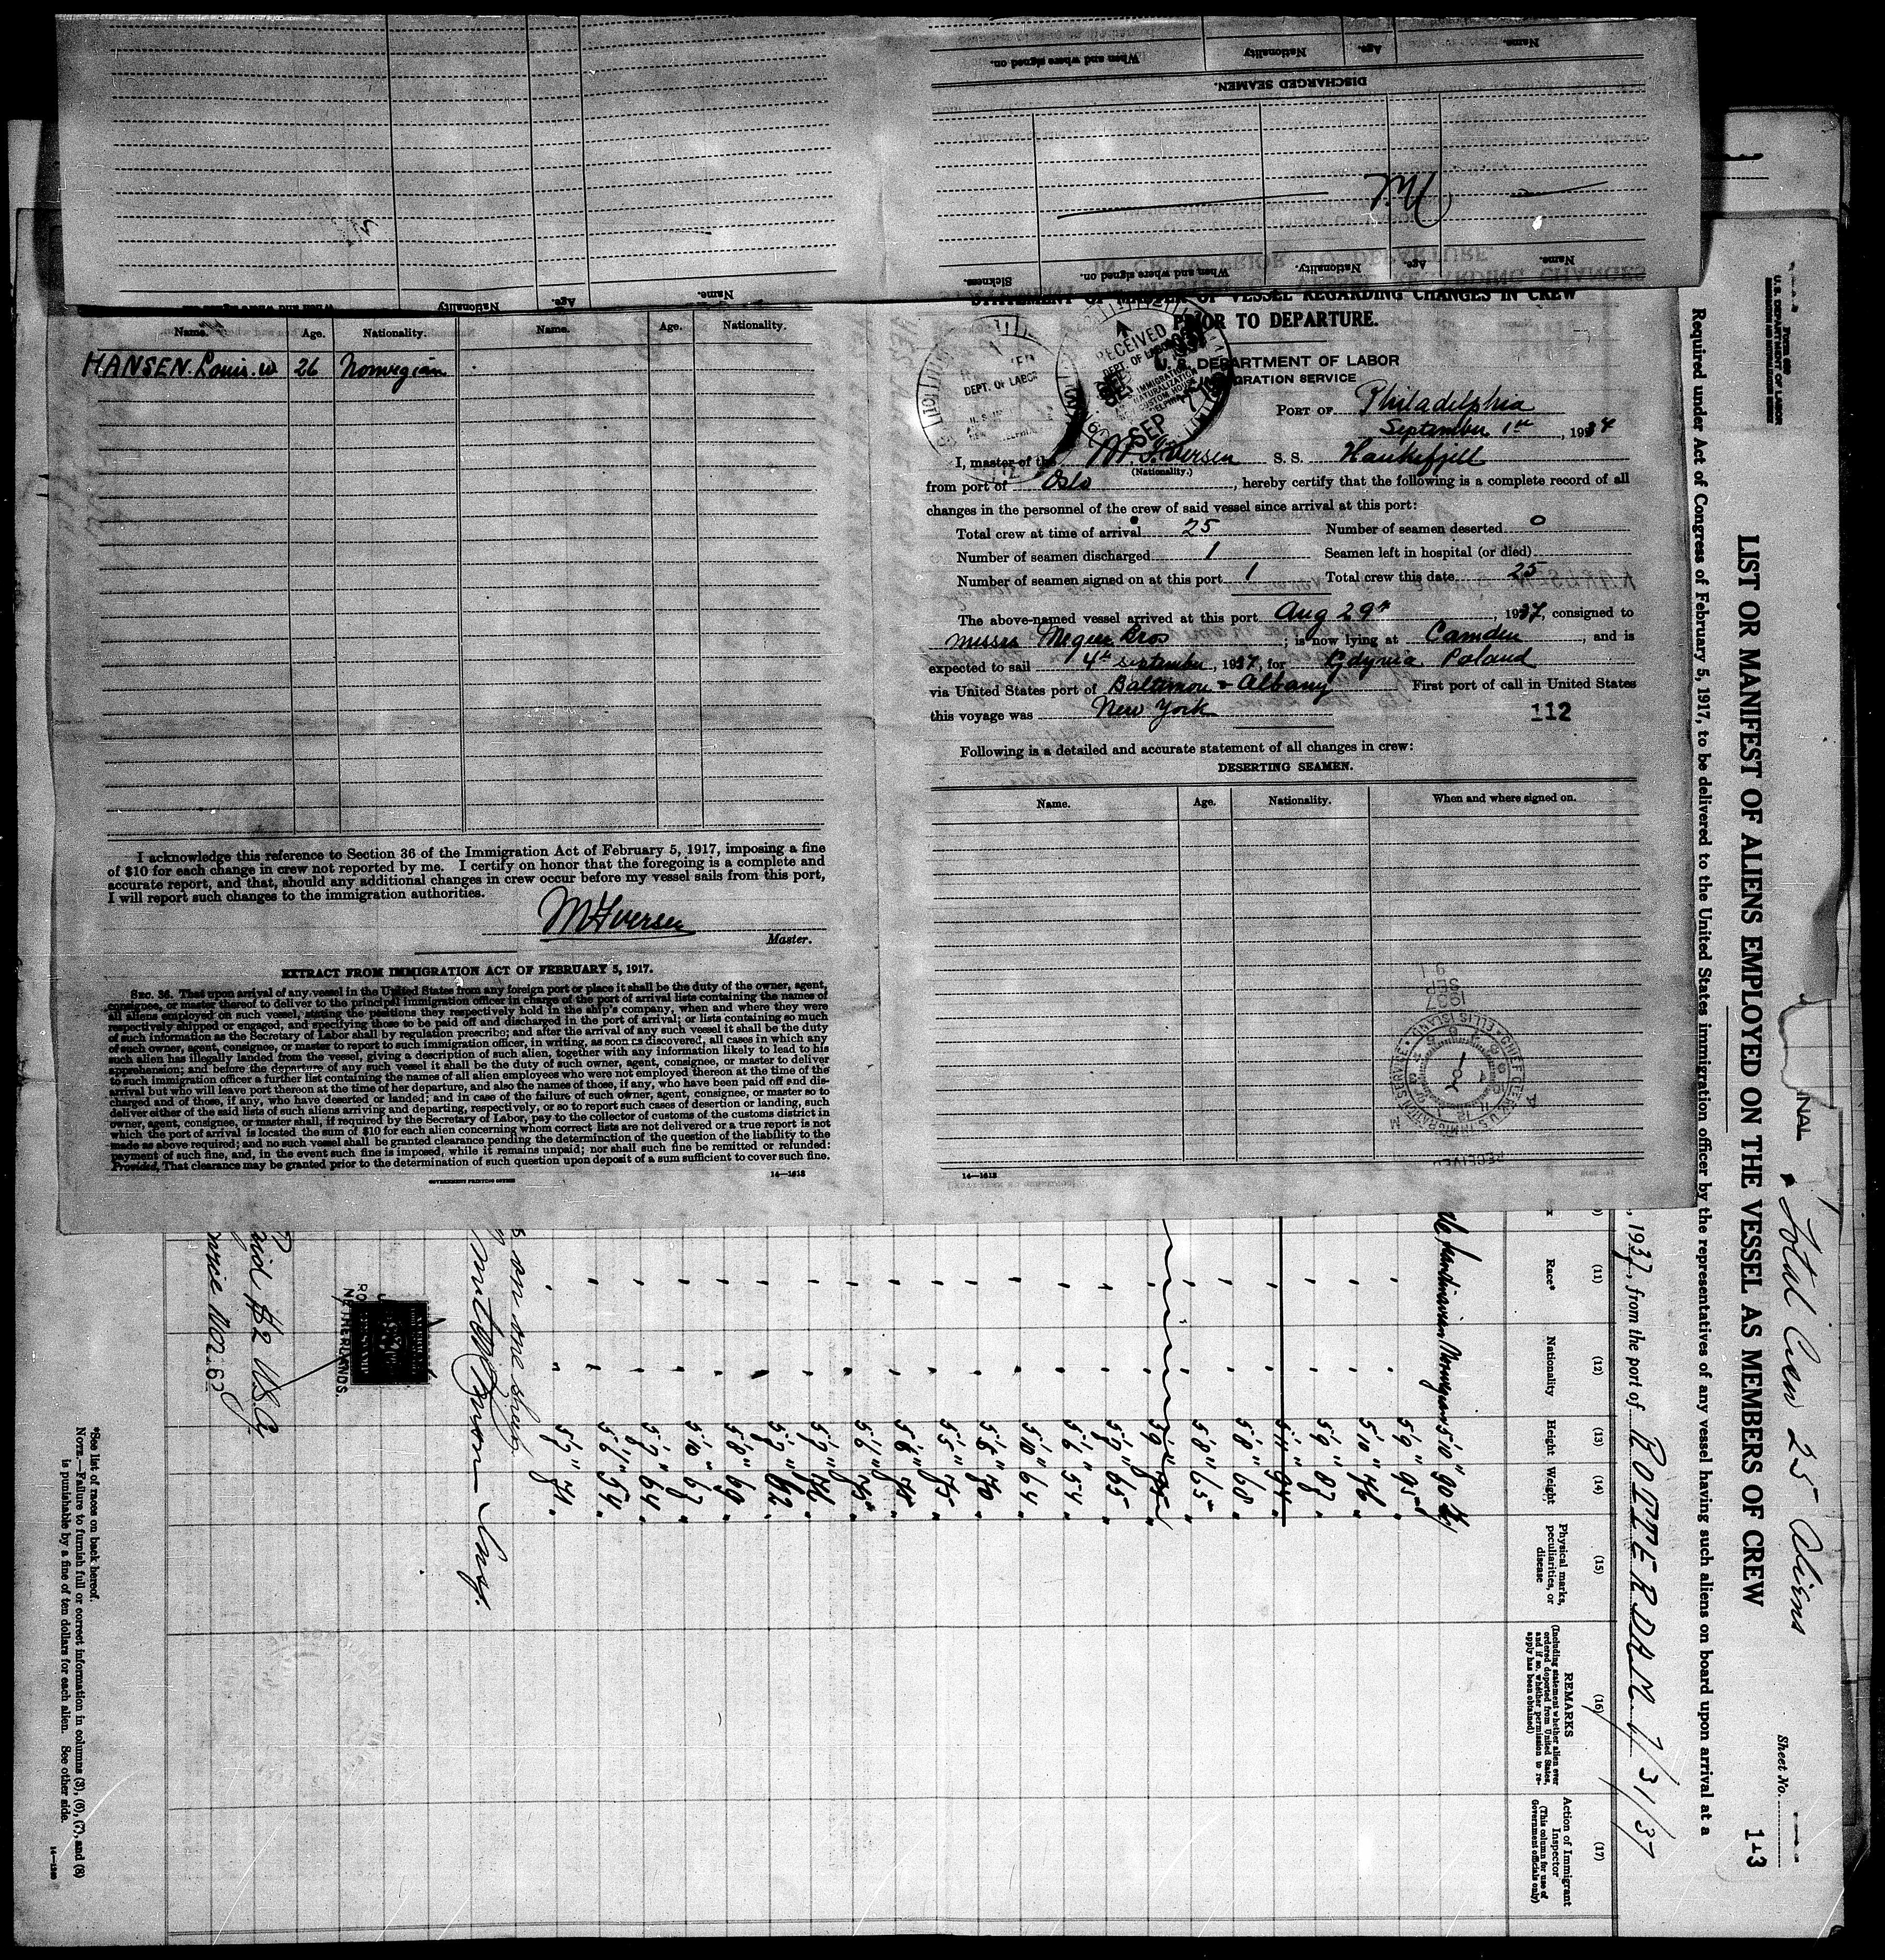 When and where signed on.
Nationality
Age.
Name.
DISCHARGED SEAMEN.
Nil
Sickness.
When and where signed on.
Nationality.
Age.
Name.
Nationality
Age.
Name.
Name. Age. Nationality. Name. Age. Nationality.
HANSEN. Louis. W 26 Norwegian
I acknowledge this reference to Section 36 of the Immigration Act of February 5, 1917, imposing a fine
of $10 for each change in crew not reported by me. I certify on honor that the foregoing is a complete and
accurate report, and that, should any additional changes in crew occur before my vessel sails from this port,
I will report such changes to the immigration authorities.
M Iversen
Master.
EXTRACT FROM IMMIGRATION ACT OF FEBRUARY 5, 1917.
SEC. 36. That upon arrival of any vessel in the United States from any foreign port or place it shall be the duty of the owner, agent,
consignee, or master thereof to deliver to the principal immigration officer in charge of the port of arrival lists containing the names of
all aliens employed on such vessel, stating the positions they respectively hold in the ship's company, when and where they were
respectively shipped or engaged, and specifying those to be paid off and discharged in the port of arrival; or lists containing so much
of such information as the Secretary of Labor shall by regulation prescribe; and after the arrival of any such vessel it shall be the duty
of such owner, agent, consignee, or master to report to such immigration officer, in writing, as soon as discovered, all cases in which any
such alien has illegally landed from the vessel, giving a description of such alien, together with any information likely to lead to his
apprehension; and before the departure of any such vessel it shall be the duty of such owner, agent, consignee, or master to deliver
to such immigration officer a further list containing the names of all alien employees who were not employed thereon at the time of the
arrival but who will leave port thereon at the time of her departure, and also the names of those, if any, who have been paid off and dis-
charged and of those, if any, who have deserted or landed; and in case of the failure of such owner, agent, consignee, or master so to
deliver either of the said lists of such aliens arriving and departing, respectively, or so to report such cases of desertion or landing, such
owner, agent, consignee, or master shall, if required by the Secretary of Labor, pay to the collector of customs of the customs district in
which the port of arrival is located the sum of $10 for each alien concerning whom correct lists are not delivered or a true report is not
made as above required; and no such vessel shall be granted clearance pending the determination of the question of the liability to the
payment of such fine, and, in the event such fine is imposed, while it remains unpaid; nor shall such fine be remitted or refunded:
Provided, That clearance may be granted prior to the determination of such question upon deposit of a sum sufficient to cover such fine.
GOVERNMENT PRINTING OFFICE 14—1618
STATEMENT OF MASTER OF VESSEL REGARDING CHANGES IN CREW
PRIOR TO DEPARTURE.
U. S. DEPARTMENT OF LABOR
IMMIGRATION SERVICE
RECEIVED
DEPT. OF LABOR
IMMIGRATION
NATURALIZATION
CUSTOM HOUSE
SEP
DEPT. OF LABOR
PORT OF Philadelphia
September 1st, 1937
I, master of the M. Iversen S. S. Haukefjell
(Nationality.)
from port of Oslo, hereby certify that the following is a complete record of all
changes in the personnel of the crew of said vessel since arrival at this port:
Total crew at time of arrival 25 Number of seamen deserted 0
Number of seamen discharged 1 Seamen left in hospital (or died)
Number of seamen signed on at this port 1 Total crew this date 25
The above-named vessel arrived at this port Aug 29th, 1937, consigned to
Messrs Megee Bros; is now lying at Camden, and is
expected to sail 4th september, 1937, for Gdynia Poland
via United States port of Baltimore & Albany First port of call in United States
this voyage was New York
112
Following is a detailed and accurate statement of all changes in crew:
DESERTING SEAMEN.
Name. Age. Nationality. When and where signed on.
SEP
1937
CHIEF CLERK'S
IMMIGRATION SERVICE
ELLIS ISLAND
RECEIVED
14—1618
Form 680
U.S. DEPARTMENT OF LABOR
Total Crew 25 Aliens
Sheet No. 1
1+3
LIST OR MANIFEST OF ALIENS EMPLOYED ON THE VESSEL AS MEMBERS OF CREW
Required under Act of Congress of February 5, 1917, to be delivered to the United States immigration officer by the representatives of any vessel having such aliens on board upon arrival at a
, 1937, from the port of ROTTERDAM 7/31/37
(11) (12) (13) (14) (15) (16) (17)
Race* Nationality Height Weight Physical marks, peculiarities, or disease REMARKS Action of Immigrant Inspector
(Including statement whether alien ever ordered deported from United States, and if so, whether permission to re-apply has been obtained)
(This column for use of Government officials only)
Scandinavian Norwegian 5'10" 90 kg
5'9" 95
5'10" 76
5'9" 87
5'11" 94
5'8" 68
5'8" 65
5'9" 75
5'9" 65
5'6" 54
5'10" 64
5'8" 70
5'5" 75
5'8" 78
5'6" 75
5'9" 76
5'9" 62
5'8" 69
5'10" 67
5'9" 64
5'6" 54
5'7" 71
on one sheet
NETHERLANDS.
paid $2 U.S.
*See list of races on back hereof.
NOTE.—Failure to furnish full or correct information in columns (3), (6), (7), and (8)
is punishable by a fine of ten dollars for each alien. See other side.